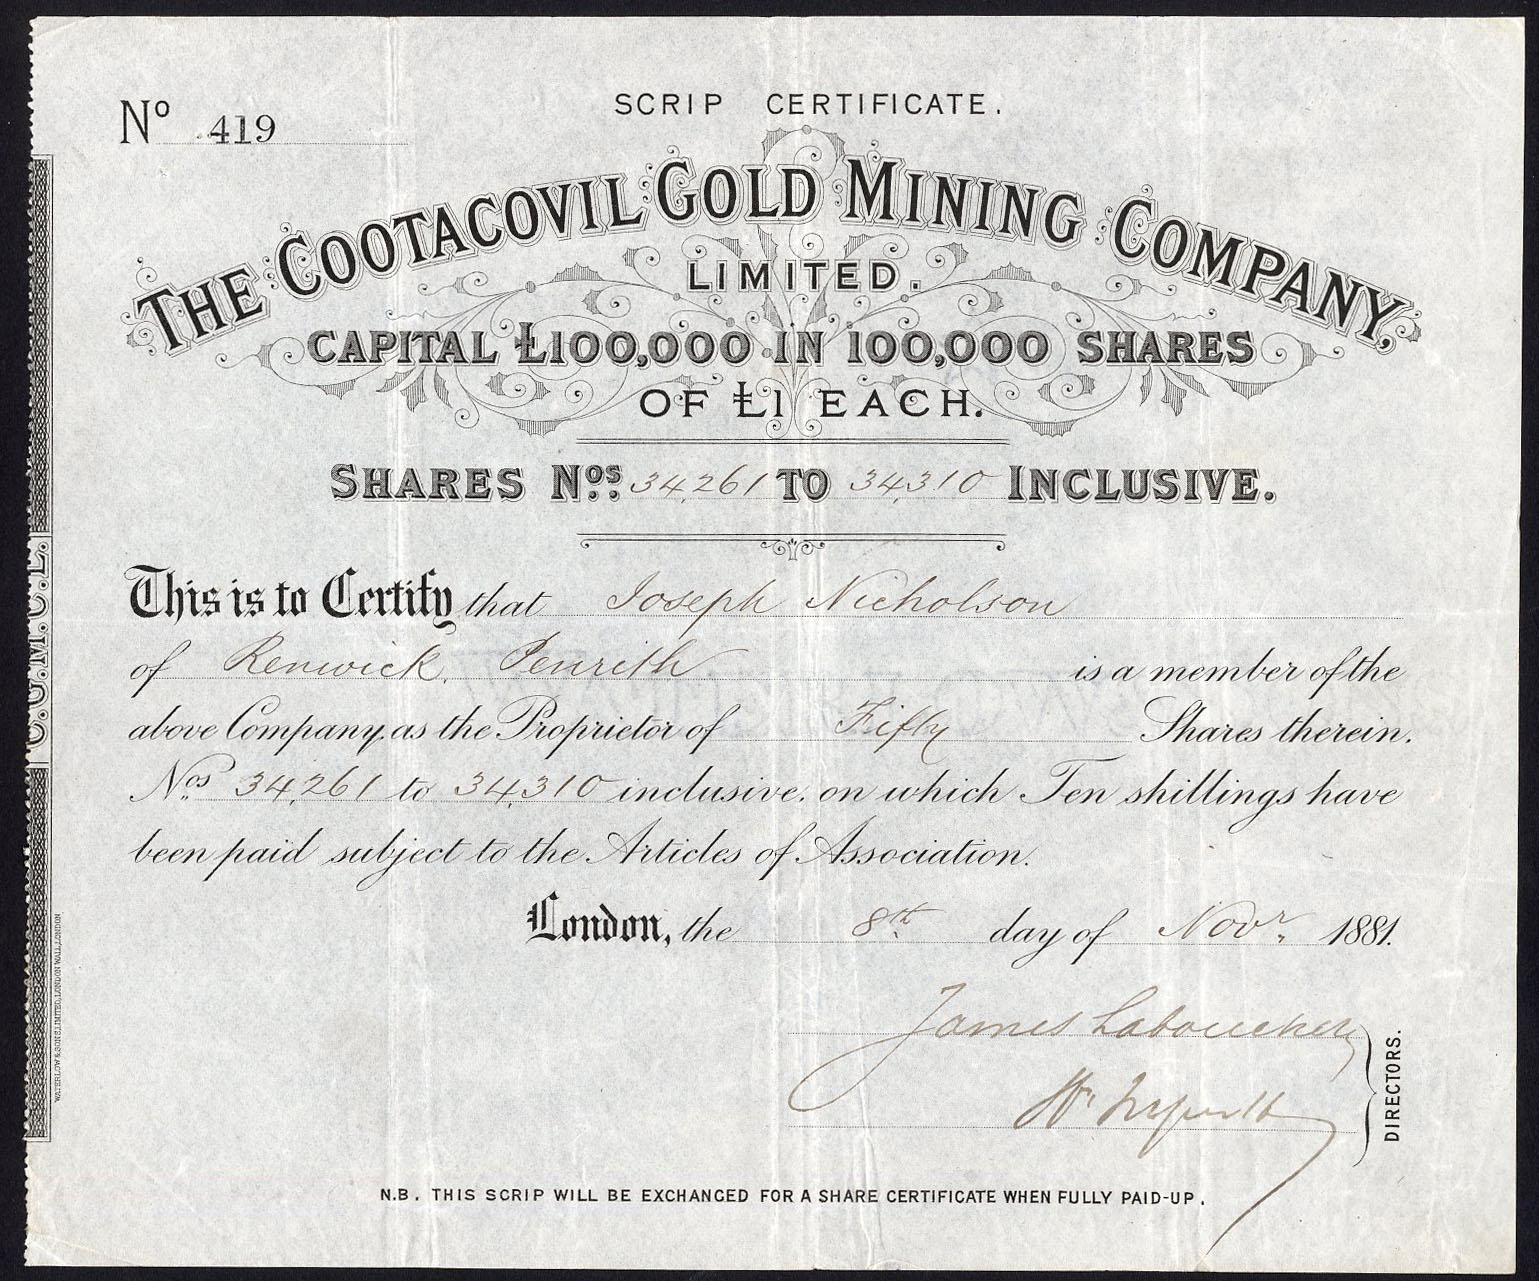 No 419
SCRIP CERTIFICATE.
THE COOTACOVIL GOLD MINING COMPANY,
LIMITED.
CAPITAL £100,000 IN 100,000 SHARES
OF £1 EACH.
SHARES Nos. 34,261 TO 34,310 INCLUSIVE.
This is to Certify that Joseph Nicholson
of Renwick, Penrith is a member of the
above Company, as the Proprietor of Fifty Shares therein.
Nos 34,261 to 34,310 inclusive. on which Ten shillings have
been paid subject to the Articles of Association.
London, the 8th day of Novr. 1881.
James
DIRECTORS.
N.B. THIS SCRIP WILL BE EXCHANGED FOR A SHARE CERTIFICATE WHEN FULLY PAID-UP.
C.G.M.C.L.
WATERLOW & SONS LIMITED, LONDON WALL, LONDON